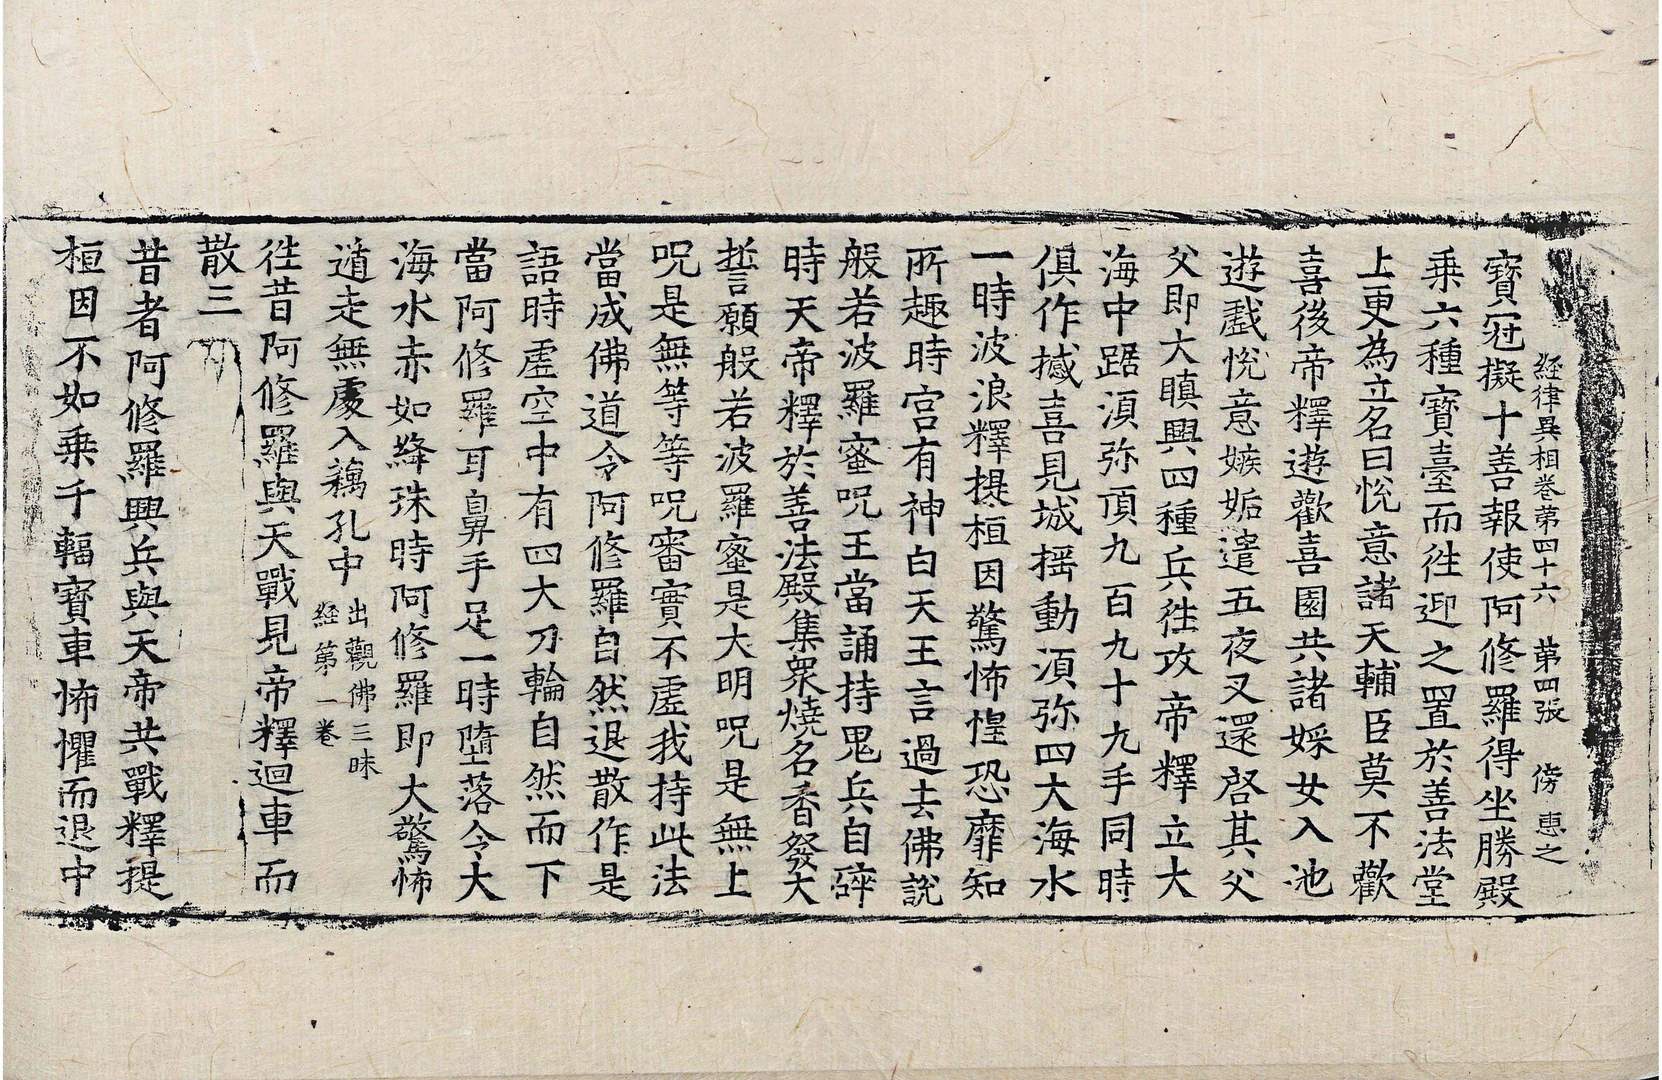 経律異相卷苐四十六 苐四張 傍 恵之
寳冠擬十善報使阿修羅得坐勝殿
乗六種寳臺而徃迎之置於善法堂
上更為立名曰悅意諸天輔臣莫不歡
喜後帝釋遊歡喜園共諸婇女入池
遊戱悅意嫉妬遣五夜叉還啓其父
父即大瞋興四種兵徃攻帝釋立大
海中踞湏弥頂九百九十九手同時
俱作撼喜見城揺動湏弥四大海水
一時波浪釋提桓因驚怖惶恐靡知
所趣時宫有神白天王言過去佛說
般若波羅蜜呪王當誦持鬼兵自碎
時天帝釋於善法殿集衆燒名香發大
誓願般若波羅蜜是大明呪是無上
呪是無等等呪審實不虛我持此法
當成佛道令阿修羅自然退散作是
語時虛空中有四大刀輪自然而下
當阿修羅耳鼻手足一時墮落令大
海水赤如絳珠時阿修羅即大驚怖
遁走無處入藕孔中 出觀佛三昧
経苐一卷
徃昔阿修羅與天戰見帝釋迴車而
散三
昔者阿修羅興兵與天帝共戰釋提
桓因不如乗千輻寳車怖懼而退中